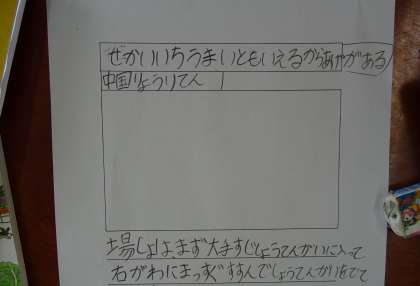 せかいいちうまいともいえるからあげがある
中国りょうりてん
場しょはまず大手すじしょうてんがいに入って
右がわにまっすぐすすんでしょうてんがいをでて